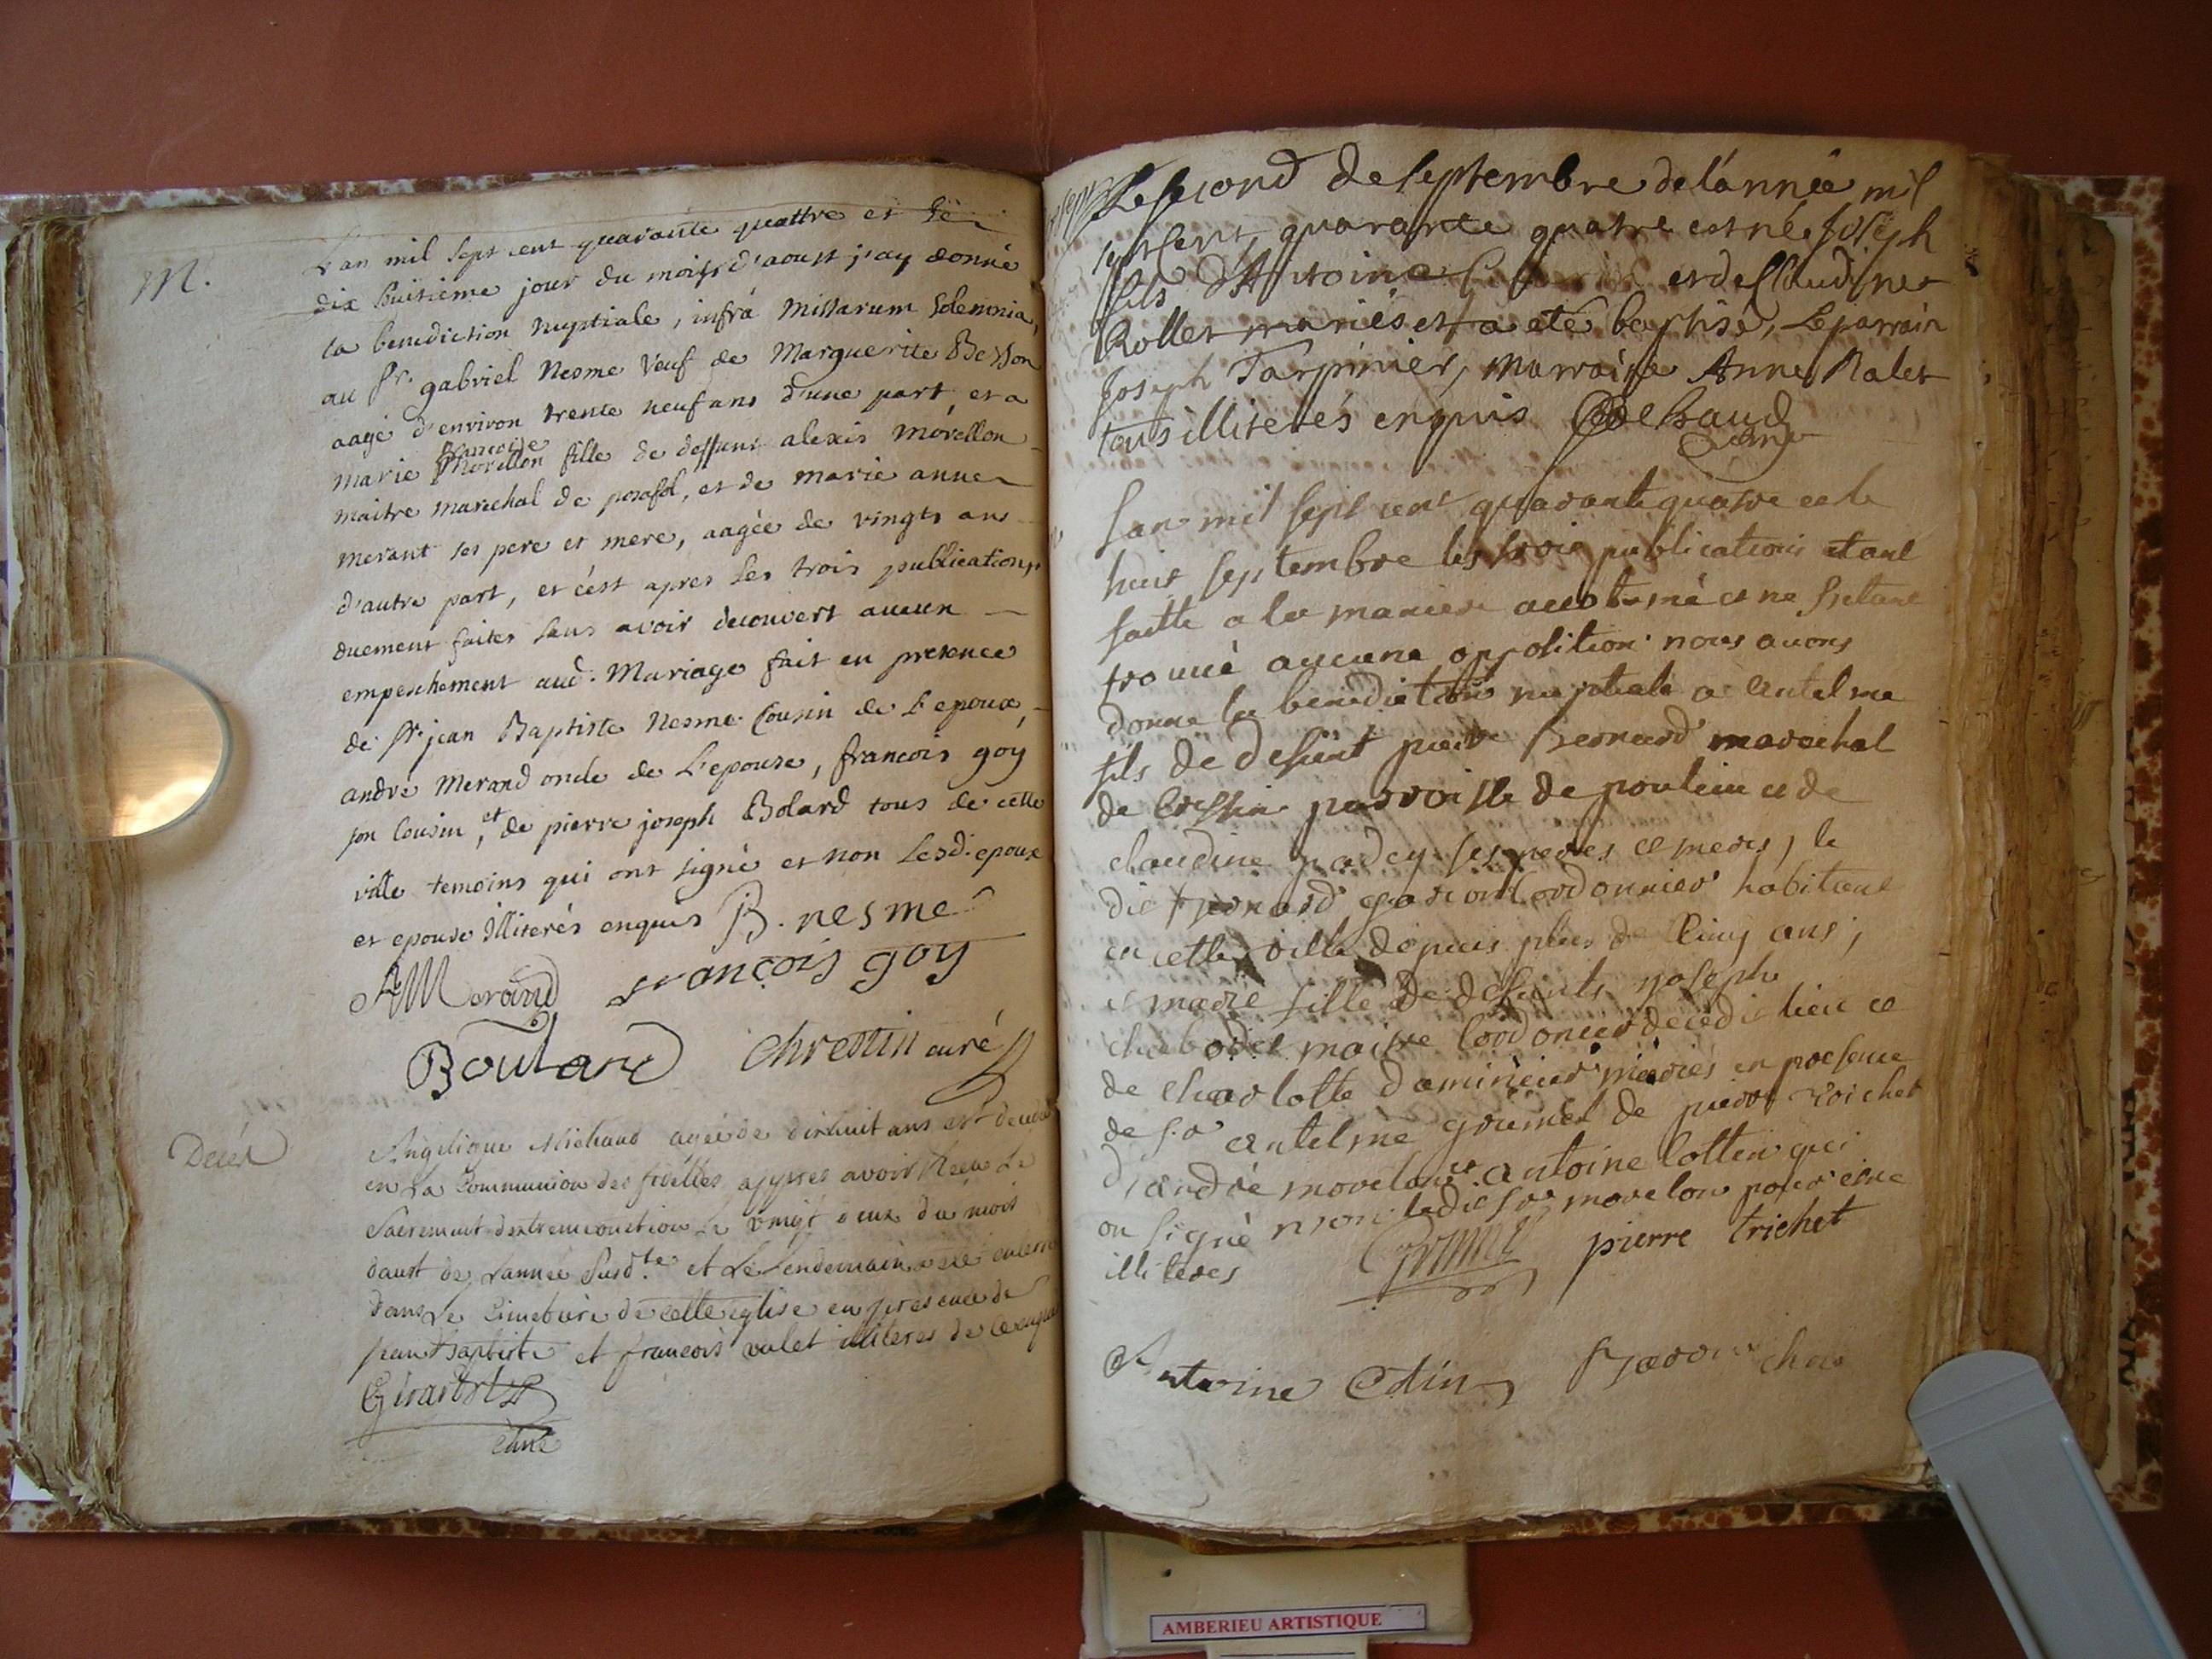 M.
L'an mil sept cent quarante quattre et le
dix huitieme jour du mois d'aoust j'ay donné
la benediction nuptiale, infrà missarum solemnia,
au Sr. gabriel Nesme veuf de Marguerite Besson
aagé d'environ trente neuf ans d'une part, et a
francoise
marie Morellon fille de deffunt alexis morellon
maitre marechal de, et de marie anne
merant ses pere et mere, aagée de vingts ans
d'autre part, et c'est apres les trois publications
duement faites sans avoir decouvert aucun
empeschement aud. Mariage fait en presence
de Sr. jean Baptiste Nesme Cousin de l'epoux,
andré Merand oncle de l'epouse, francois goy
son Cousin, et de pierre joseph Bolard tous de cette
ville temoins qui ont signé et non lesd. epoux
et epouse illiterés enquis B. nesme
Merand francois goy
Boulard Chrestin curé
Decés
Angelique Michaud agée de dixhuit ans est decedé
en La Communion des fidelles appres avoir Receu Le
Sacrement dextremonction Le vingt deux du mois
daust de Lannée susdte. et Le Lendemain a été enterré
dans Le Cimetiere de cette eglise en presence de
jean Baptiste et francois valet illiteres de ce enquis
curé
Le second de septembre de l'année mil
sept cent quarante quatre est né Joseph
fils d'Antoine et de Claudine
Rollet mariés et a été baptisé, Le parrain
Joseph Tarpinier, marraine Anne Ralet
tous illiterés enquis
L'an mil sept cent quarante quatre et le
huit septembre les trois publications etant
faitte a la maniere accotumé et ne s'etant
trouué aucune oppolition nous avons
donné la benediction nuptiale a Antelme
fils de defunt pierre Bernard marechal
de parroisse de poulieu et de
claudine ses peres et meres, le
dit Bernard garcon Cordonnier habitant
en cette ville depuis plus de Cinq ans,
et marie fille de defunts joseph
maitre Cordonier de cedit lieu et
de charlotte mariés en presence
de Sr antelme grumet de pierre trichet
d'andré morelon et antoine Cottin qui
on signé non ledit Sr morelon pour etre
illiteres Grumet pierre trichet
Antoine Cotin
AMBERIEU ARTISTIQUE